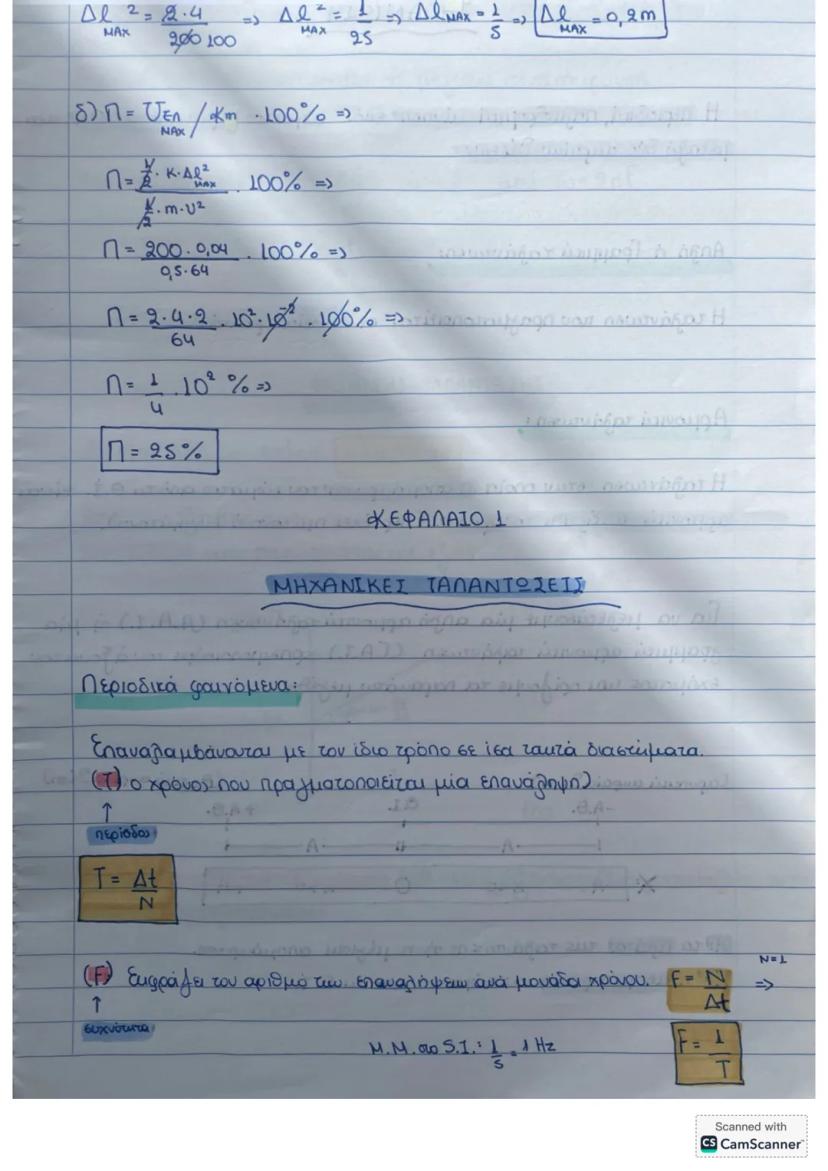 Δl²MAX = 2·4/200 100 => Δl²MAX = 1/25 => ΔlMAX = 1/5 => ΔlMAX = 0,2m
δ) Π = UΕΛMAX / Km · 100% =>
Π = 1/2 · K·Δl²MAX / 1/2 · m·υ² · 100% =>
Π = 200·0,04 / 0,5·64 · 100% =>
Π = 2·4·2 / 64 · 10²·10⁻² · 100% =>
Π = 1/4 · 10² % =>
Π = 25%
ΚΕΦΑΛΑΙΟ 1
ΜΗΧΑΝΙΚΕΣ ΤΑΛΑΝΤΩΣΕΙΣ
Περιοδικά φαινόμενα:
Επαναλαμβάνονται με τον ίδιο τρόπο σε ίσα ταυτά διαστήματα.
(T) ο χρόνος που πραγματοποιείται μία επανάληψη)
↑
περίοδος
T = Δt/N
(F) Εκφράζει τον αριθμό των επαναλήψεων ανά μονάδα χρόνου. F = N/Δt N=1 =>
↑
συχνότητα
Μ.Μ. στο S.I.: 1/s = 1 Hz F = 1/T
Scanned with
CS CamScanner